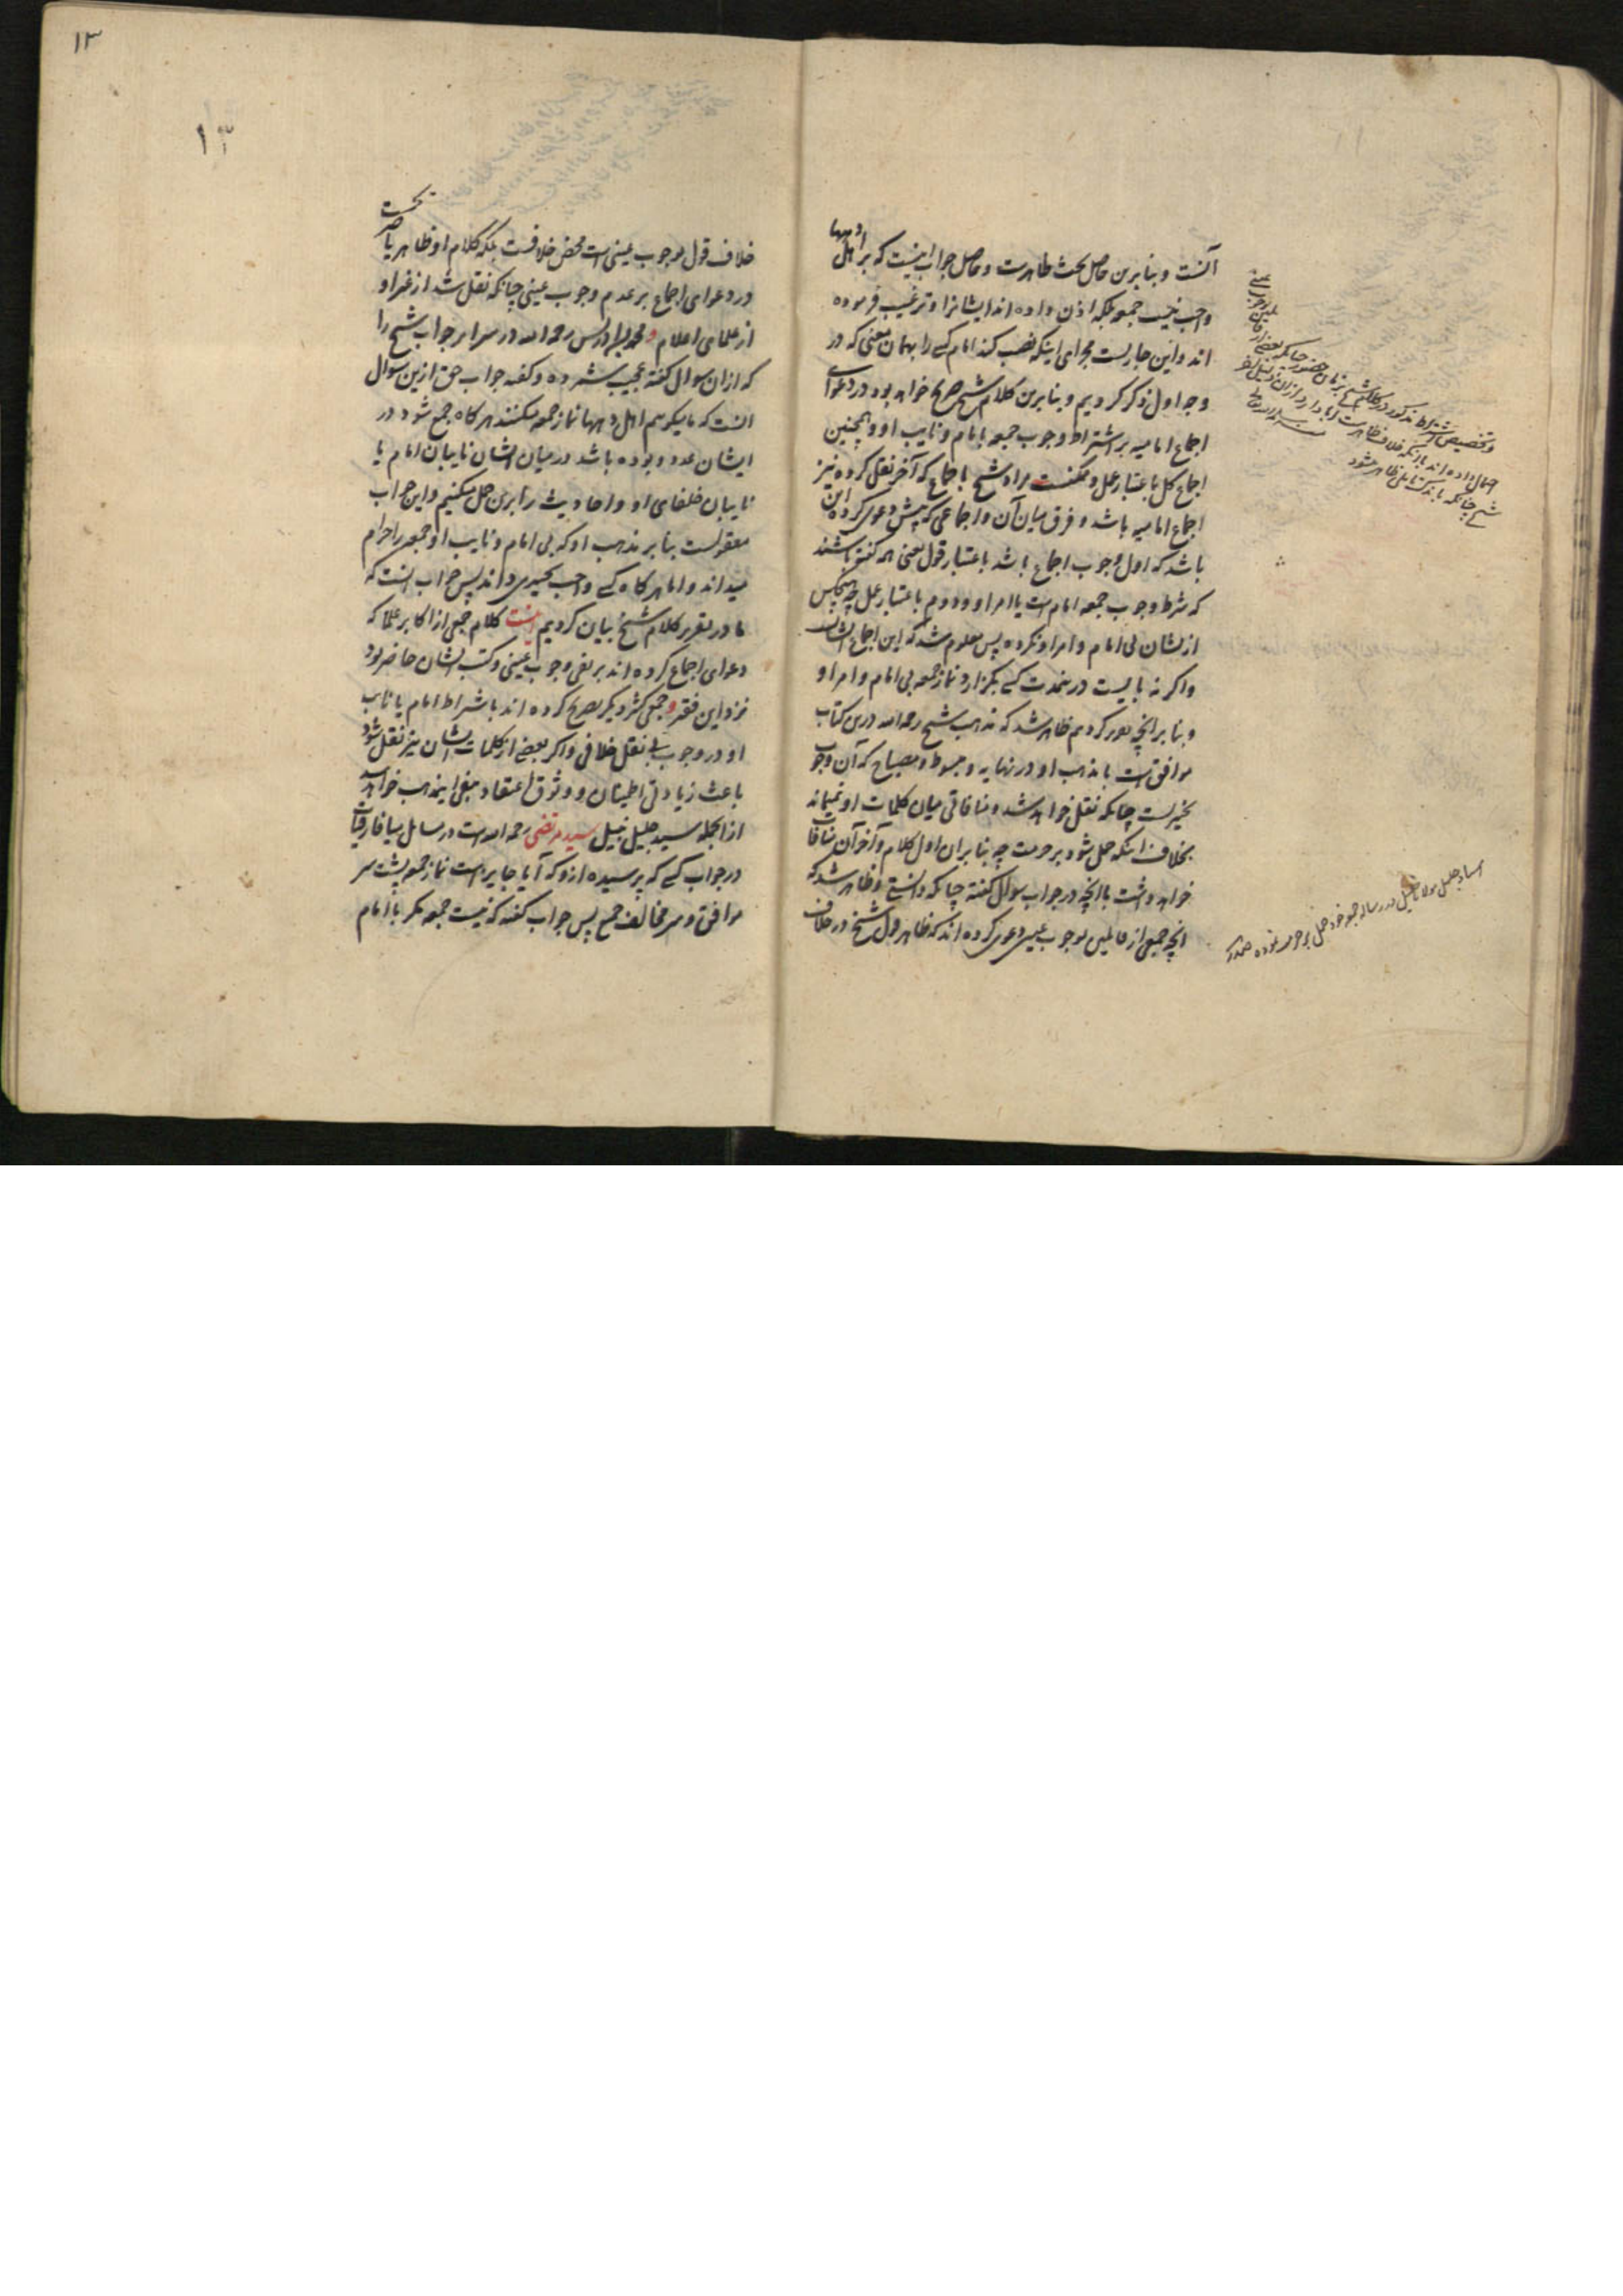 آنست و بنا برین حاصل بحث ظاهرست و حاصل جواب اینست که بر اهل دیهها
واجب نیست جمعه بلکه اذن داده اند ایشانرا و ترغیب فرموده
اند و این جاریست مجرای اینکه نصب کند امام کسی را بهمان معنی که در
وجه اول ذکر کردیم و بنا برین کلام شیخ صریح خواهد بود در دعوای
اجماع امامیه بر اشتراط وجوب جمعه بامام و نایب او و همچنین
اجماع کل باعتبار عمل و ممکنست مراد شیخ باجماع که آخر نقل کرده نیز
اجماع امامیه باشد و فرق میان آن و اجماعی که پیش دعوی کرده این
باشد که اول وجوب اجماع باشد باعتبار قول یعنی همه گفته باشند
که شرط وجوب جمعه امام است یا امر او و دوم باعتبار عمل چه هیچکس
ازیشان بی امام و امر او نکرده پس معلوم شد که این اجماع ایشانست
و اگر نه بایست درینمدت کسی بگزارد نماز جمعه بی امام و امر او
و بنا بر آنچه کردیم ظاهر شد که مذهب شیخ رحمه الله درین کتاب
موافق است با مذهب او در نهایه و مبسوط و مصباح که آن وجوب
تخییریست چنانکه نقل خواهد شد و منافاتی میان کلمات او نمیماند
بخلاف اینکه حمل شود بر حرمت چه بنا بران اول کلام و آخر آن منافات
خواهد داشت با آنچه در جواب سوال گفته چنانکه دانستی و ظاهر شد که
آنچه جمعی از قائلین بوجوب عینی دعوی کرده اند که ظاهر قول شیخ در خلاف
و تخصیص اشتراط مذکور در کلام شیخ بزمان حضور چنانکه بعضی از قائلین بوجوب عینی
احتمال داده اند
شیخ چنانکه باندک تاملی ظاهر میشود
استاد جلیل مولانا خلیل در رساله جمعه خود حمل بر حرمت نموده
۱۳
۱۳
خلاف قول بوجوب عینی است محض خلافست بلکه کلام او ظاهر یا صریحست
در دعوای اجماع بر عدم وجوب عینی چنانکه نقل شد از غیر او
از علمای اعلام و محمد بن ادریس رحمه الله در سرایر جواب شیخ را
که ازان سوال گفته عجیب شمرده و گفته جواب حق ازین سوال
آنست که ما میگوییم اهل دیهها نماز جمعه میکنند هر گاه جمع شود در
ایشان عدد و بوده باشد در میان ایشان نایبان امام یا
نایبان خلفای او و احادیث را برین حمل میکنیم و این جواب
معقولست بنا بر مذهب او که بی امام و نایب او جمعه را حرام
میداند و اما هر گاه کسی واجب تخییری داند پس جواب آنست که
ما در تقریر کلام شیخ بیان کردیم اینست کلام جمعی از اکابر علما که
دعوای اجماع کرده اند بر نفی وجوب عینی و کتب ایشان حاضر بود
نزد این فقیر و جمعی کثیر دیگر تصریح کرده اند باشتراط امام یا نایب
او در وجوب بی نقل خلافی و اگر بعضی از کلمات ایشان نیز نقل شود
باعث زیادتی اطمینان و وثوق اعتقاد مبغی اینمذهب خواهد
ازانجمله سید جلیل نبیل سید مرتضی رحمه الله است در مسایل میافارقیات
در جواب کسی که پرسیده ازو که آیا جایز است نماز جمعه پشت سر
موافق و سر مخالف جمع پس جواب گفته که نیست جمعه مگر با امام